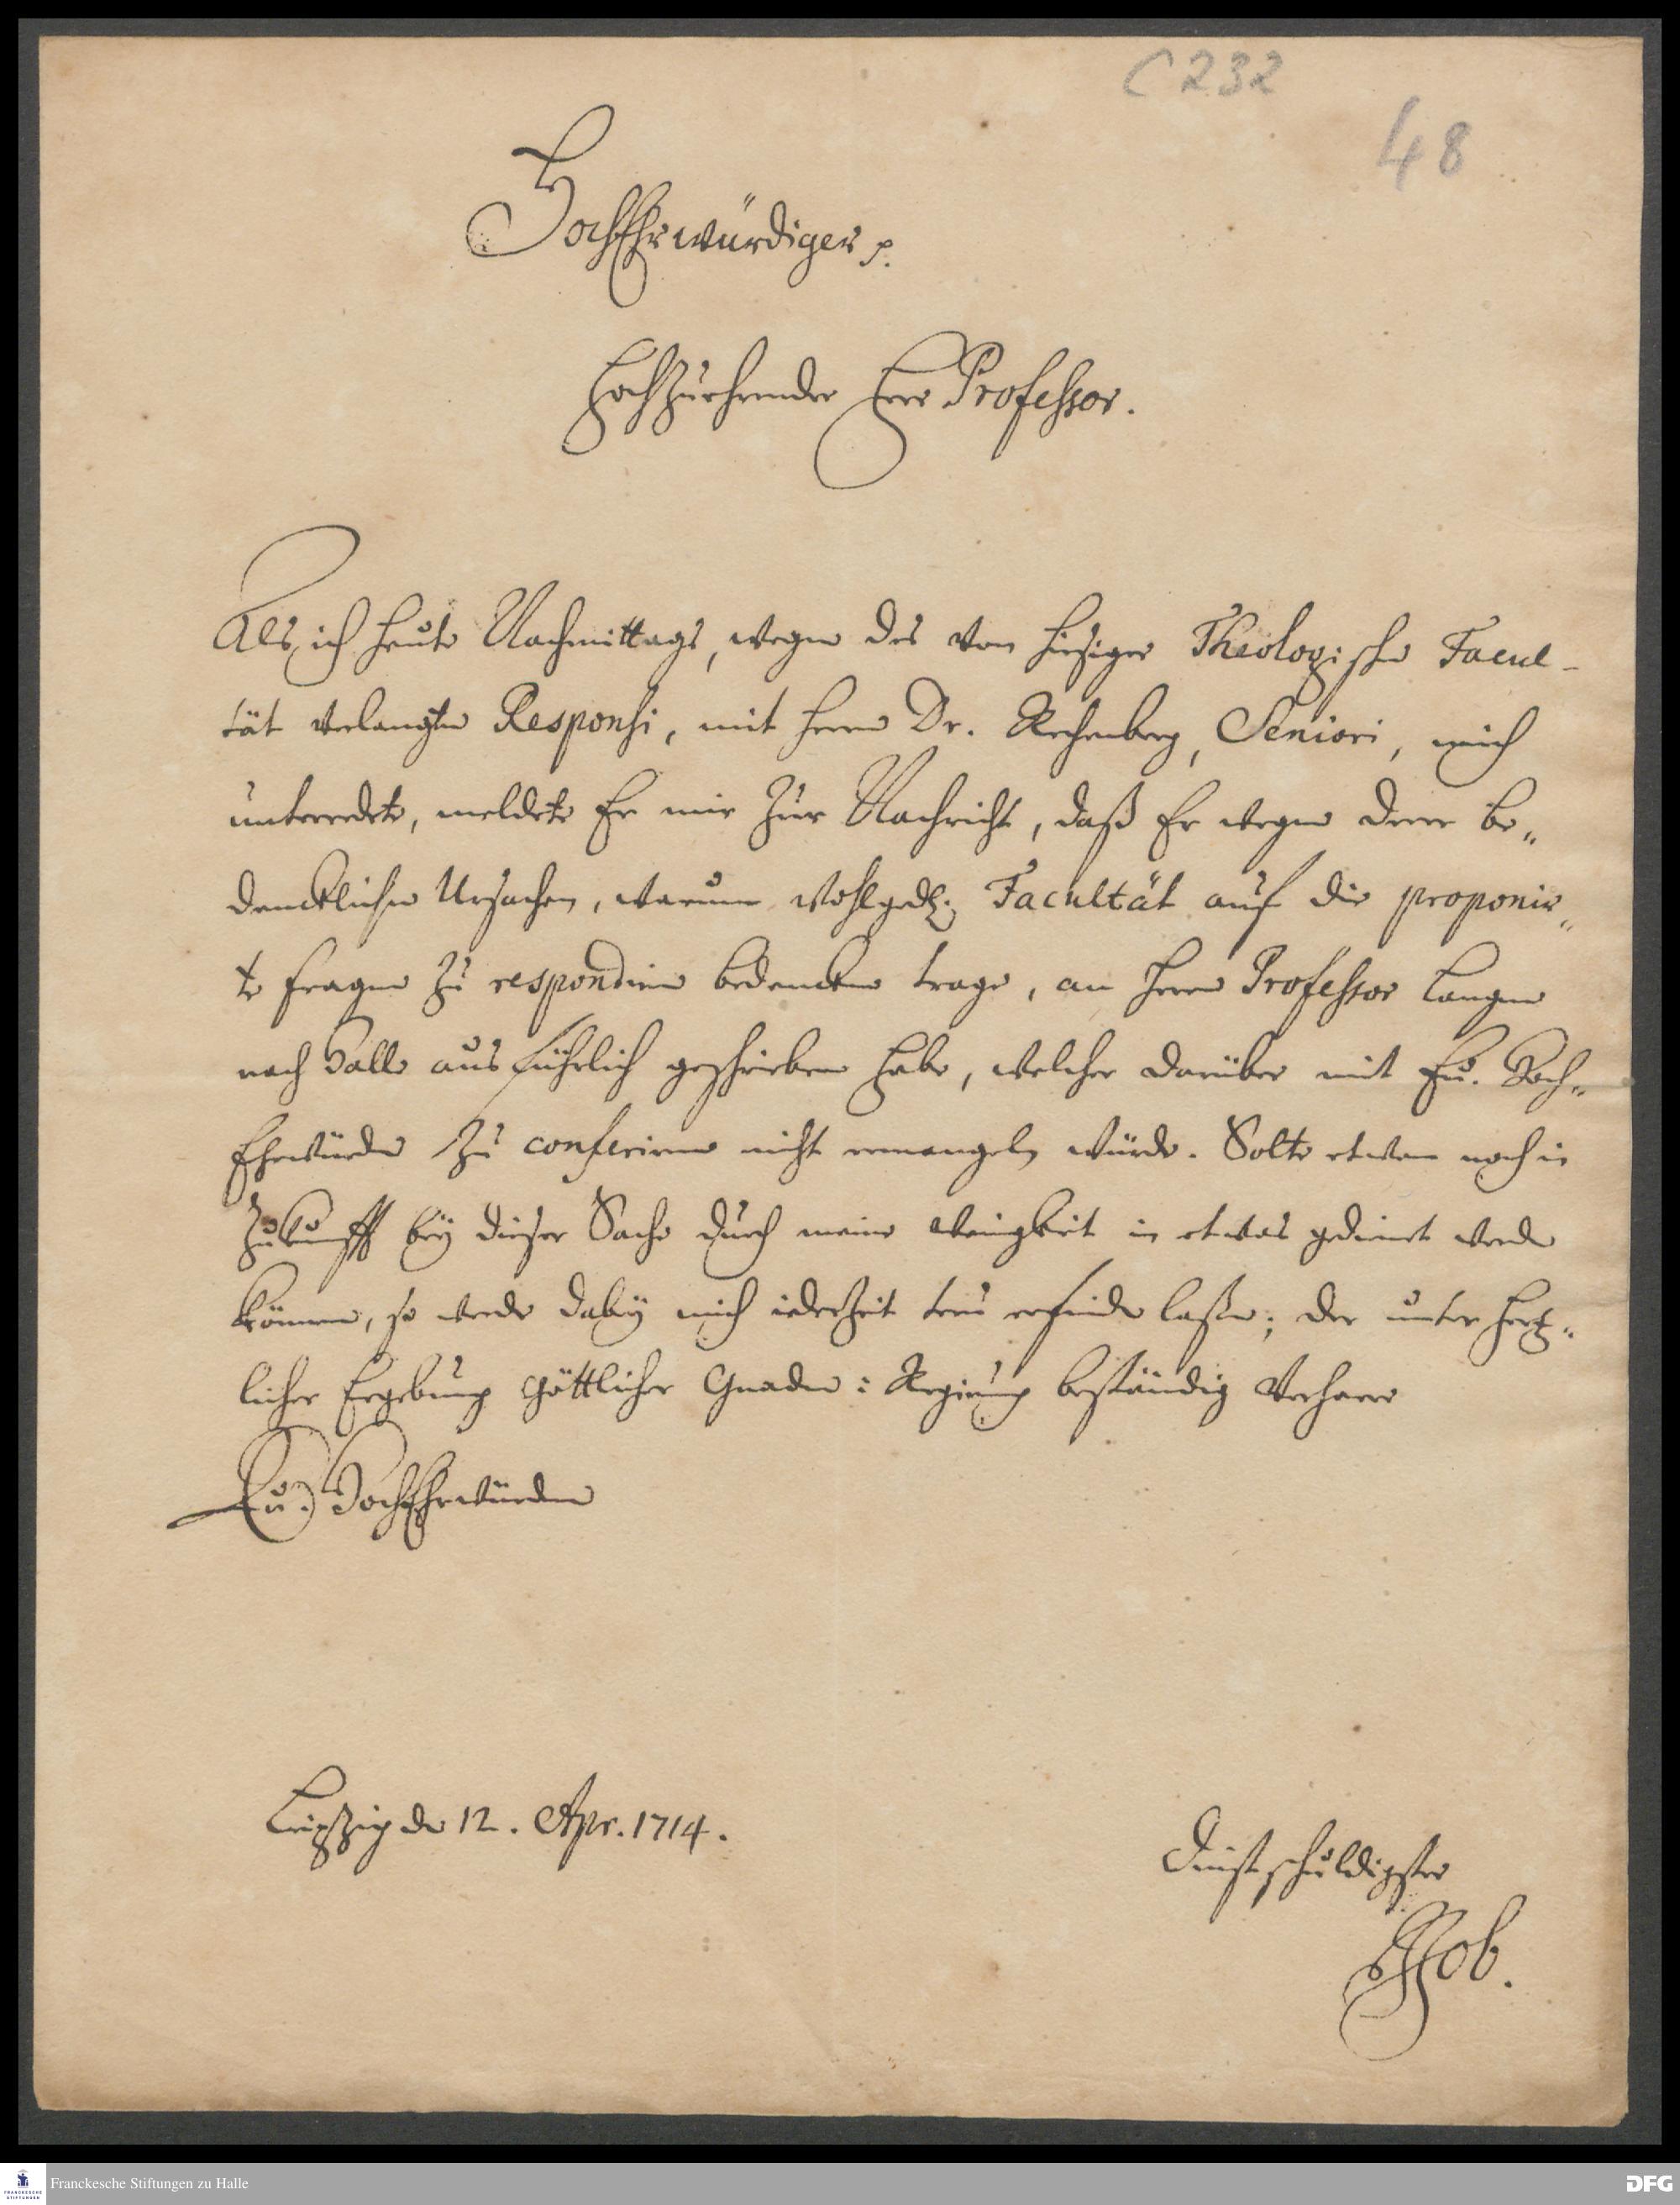 C 232
48
HochEhrwürdiger p.
Hochzuehrender Herr Professor.
Als ich heute Nachmittags, wegen des von hiesiger Theologischen Facul-
tät verlangten Responsi, mit Herrn Dr. Rechenberg, Seniori, mich
unterredete, meldete Er mir zur Nachricht, daß Er wegen derer be„
dencklichen Ursachen, warum wohlgedl. Facultät auf die proponir„
te fragen zu respondiren bedencken trage, an Herrn Professor Langen
nach Halle ausführlich geschrieben habe, welcher darüber mit Eu. Hoch„
Ehrwürden zu conferiren nicht ermangeln würde. Solte etwan noch in
Zukunfft bey dieser Sache durch meine wenigkeit in etwas gedienet werden
können, so werde dabey mich iederzeit treu erfinden laßen; der unter hertz„
licher Ergebung Göttlicher Gnaden: Regirung beständig verharre
Eu. HochEhrwürden
Leipzig den 12. Apr. 1714.
Dienstschuldigster